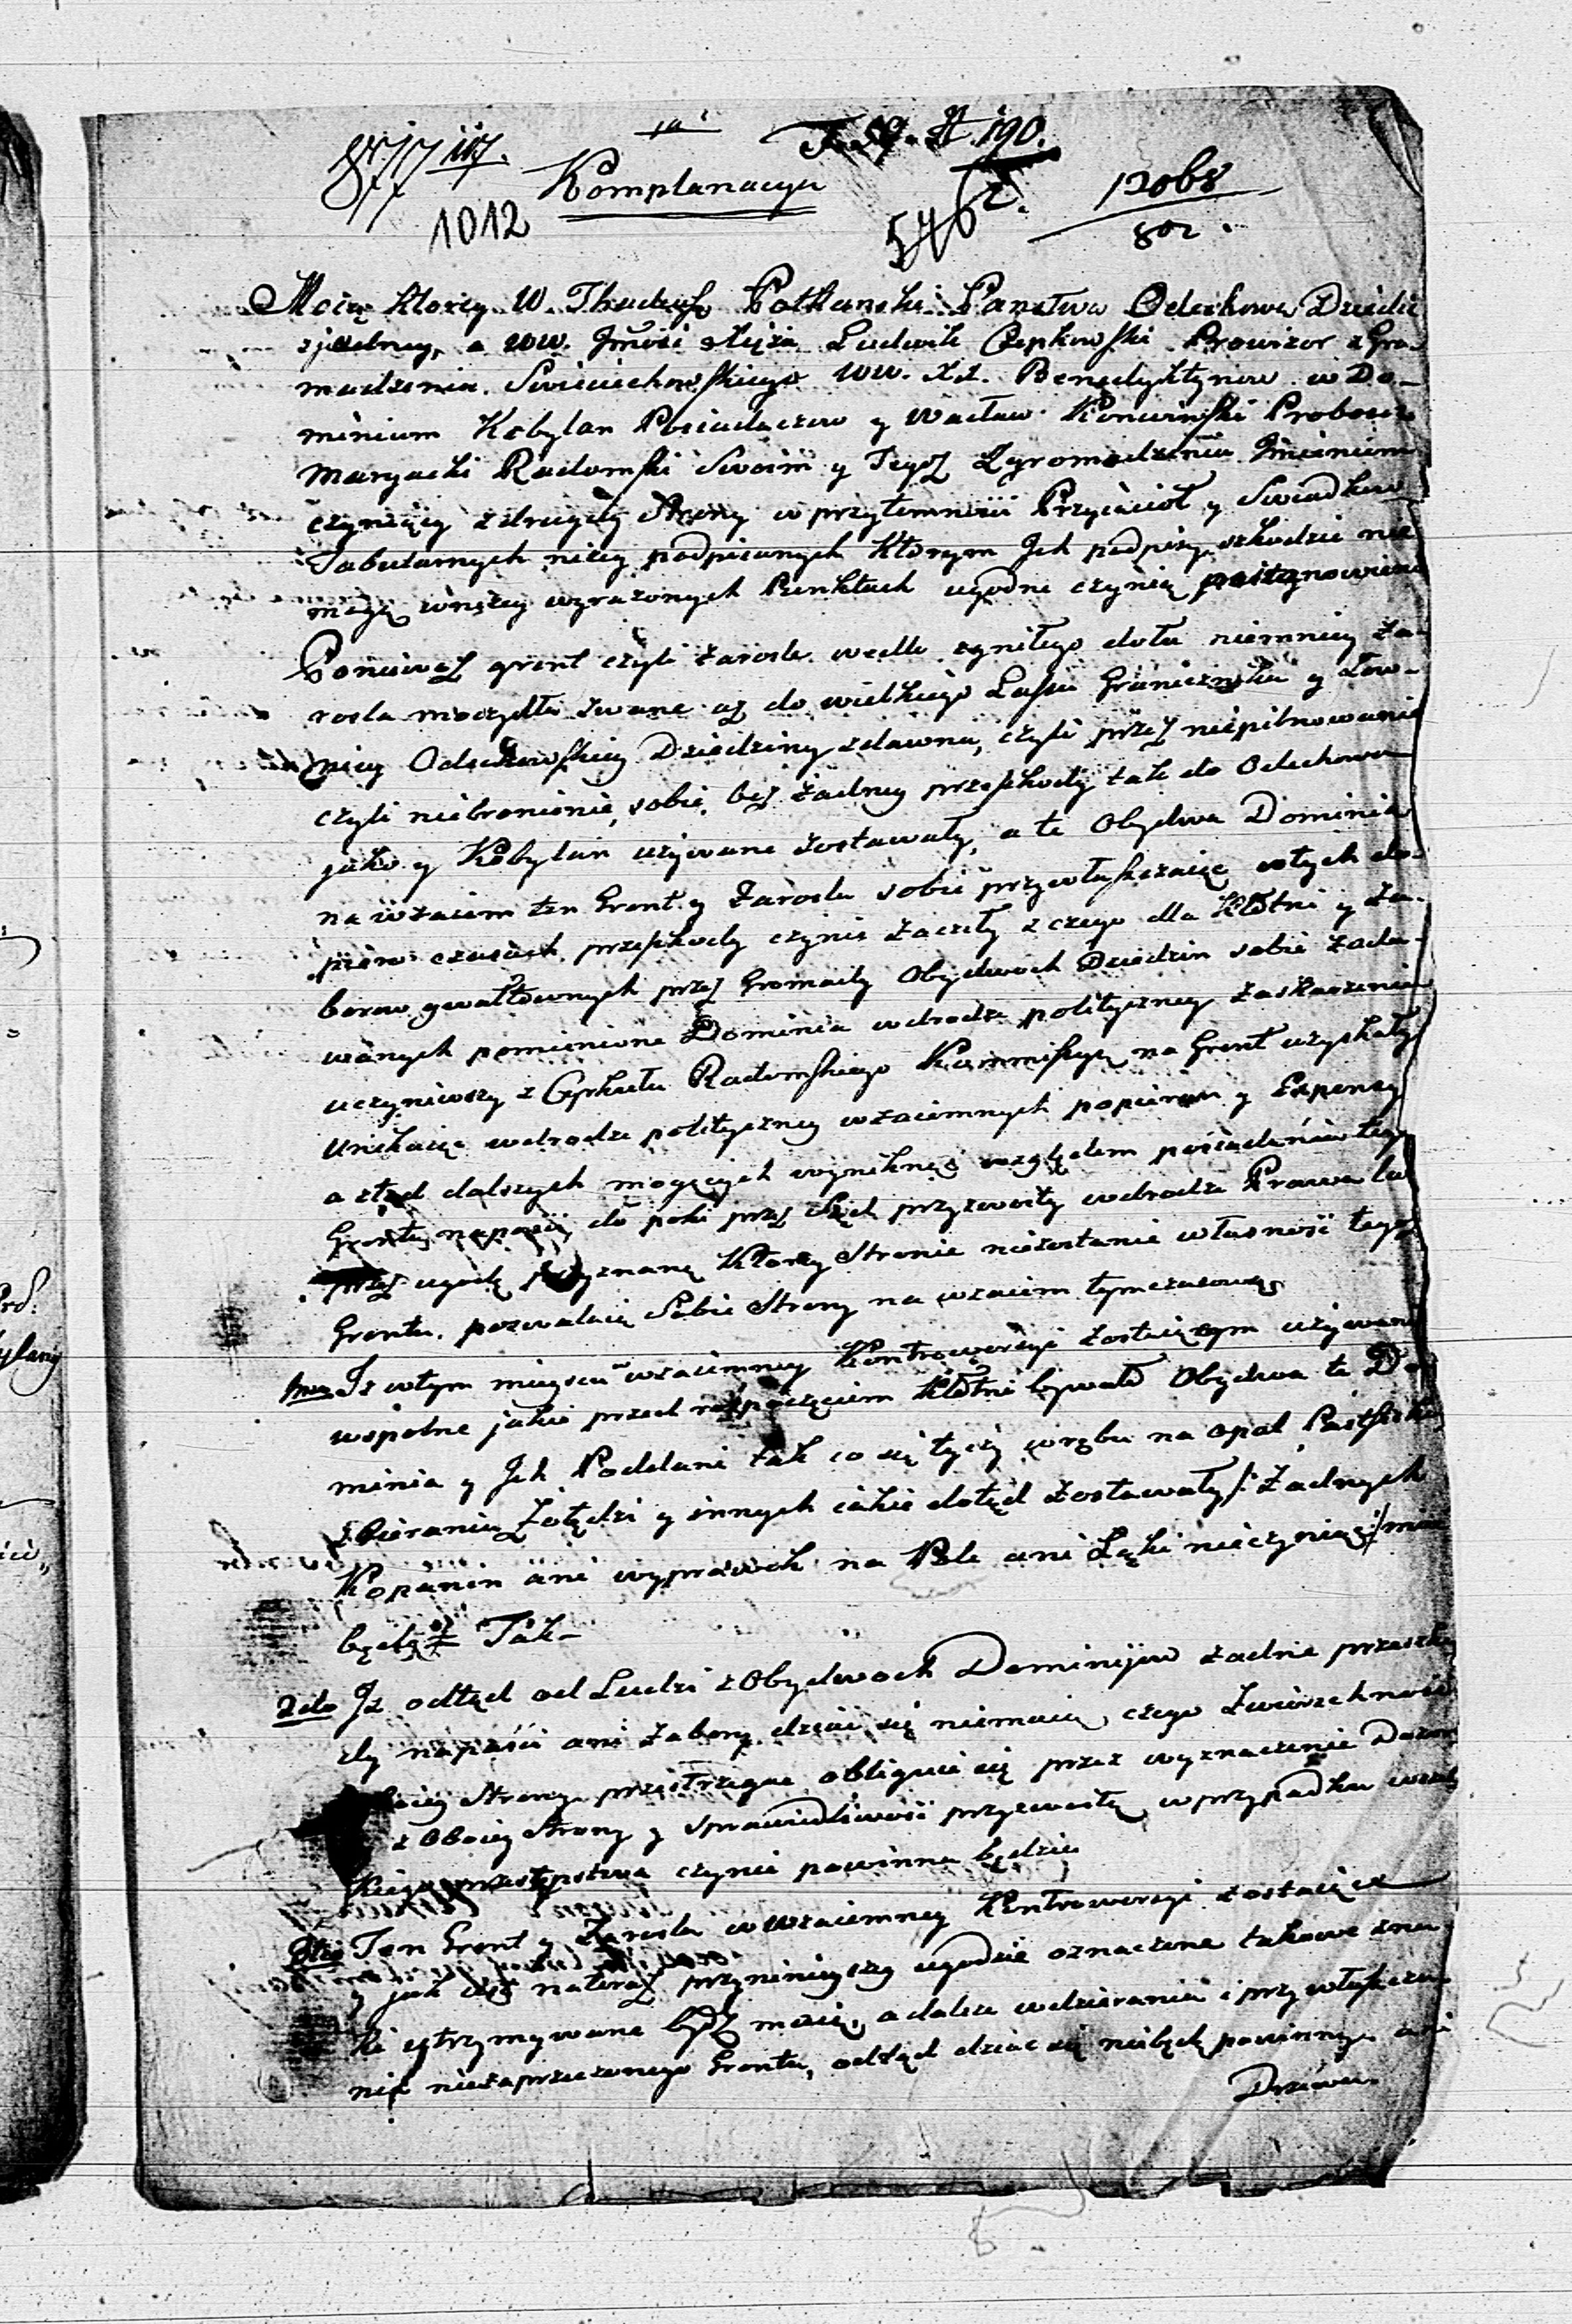 877 117.
1a
F. 59. St. 190.
Komplanacya
1012
546
12068
802.
Mocą ktorey W. Thadeusz Potkanski Państwa Odechowa Dziedic
z jedney, a WW. Jmość Xięża Ludwik Czepkowski Prowizor z Gro-
madzenia Swieciechowskiego WW. XX. Benedyktynow w Do-
minium Kobylan Posiadaczow y Wacław Koncinski Proboszcz
Maryacki Radomski Swoim y Tegoż Zgromadzenia Jmieniem
czyniący z drugiey Strony w przytomności Przyiaciół y Swiadkow
Tabularnych niżey podpisanych Którym Jch podpisy szkodzić nie
mogą wniżey wyrażonych Punktach ugodne czynią postanowienie
Ponieważ grunt czyli zarosla wedle zgniłego dołu niemniey Za-
rosla moczydła zwane aż do wielkiego Lassu Granicznika y Łow-
niey Odechowskiey Dziedziny zdawna, czyli przez niepilnowanie
czyli niebronienie sobie, beż żadney przeszkody tak do Odechowa
jako y Kobylan używane zostawały, a te Obydwa Dominia
na wzaiem ten Grunt y Zarosla sobie przywłaszczaiąc wtych do-
piero czasach przeszkody czynić zaczęły z czego dla Kłótni y Za-
borow gwałtownych przez Gromady Obydwoch Dziedzin sobie zada-
wanych pomienione Dominia wdrodze polityczney zaskarzenia
uczyniwszy z Cyrkułu Radomskiego Kommissyą na Grunt uzyskały
Unikaiąc wdrodze polityczney wzaiemnych popierań y Expensy
a ztąd dalszych mogących wyniknąć względem posiadania tego
Gruntu napaści, do poki przez Sąd przyzwoity wdrodze Prawa lub
przez ugodę przyznaną Ktorey Stronie niezostanie własność tegoż
Gruntu, pozwalaią Sobie Strony na wzaiem tymczasowo,
1mo Iż wtym mieyscu wzaiemney Kontrowersyi zostaiącym używanie
wspolne jakie przed rozpoczęciem Kłótni bywało Obydwa te Do-
minia y Jch Poddani tak co się tyczy wrębu na opał Pastwisk
zbierania Żołędzi y innych iakie dotąd zostawały /: Żadnych
Kopanin ani wyprawek na Pole ani Łąki nieczyniąc :/ mieć
będą Tak-
2do Iż odtąd od Ludzi z Obydwoch Dominijow żadne przeszko-
dy napaści ani zabory dziać się niemaią, czego Zwierzchność
Strony przestrzegać obliguie się przez wyznaczenie Dozoru
z Oboiey Strony y sprawiedliwość przyzwoitą w przypadku wszel-
kiego przestępstwa czynić powinna będzie
3tio Ten Grunt y Zarosla w wzaiemney Kontrowersyi zostaiące
y jak są na teraz przy ninieyszey ugodzie oznaczone takowe zna-
ki utrzymywane bydź maią, a dalsze wdzierania i przywłaszcza-
nie niezaprzeczonego Gruntu, odtąd dziać się niebędą powinny ani
Drzewa